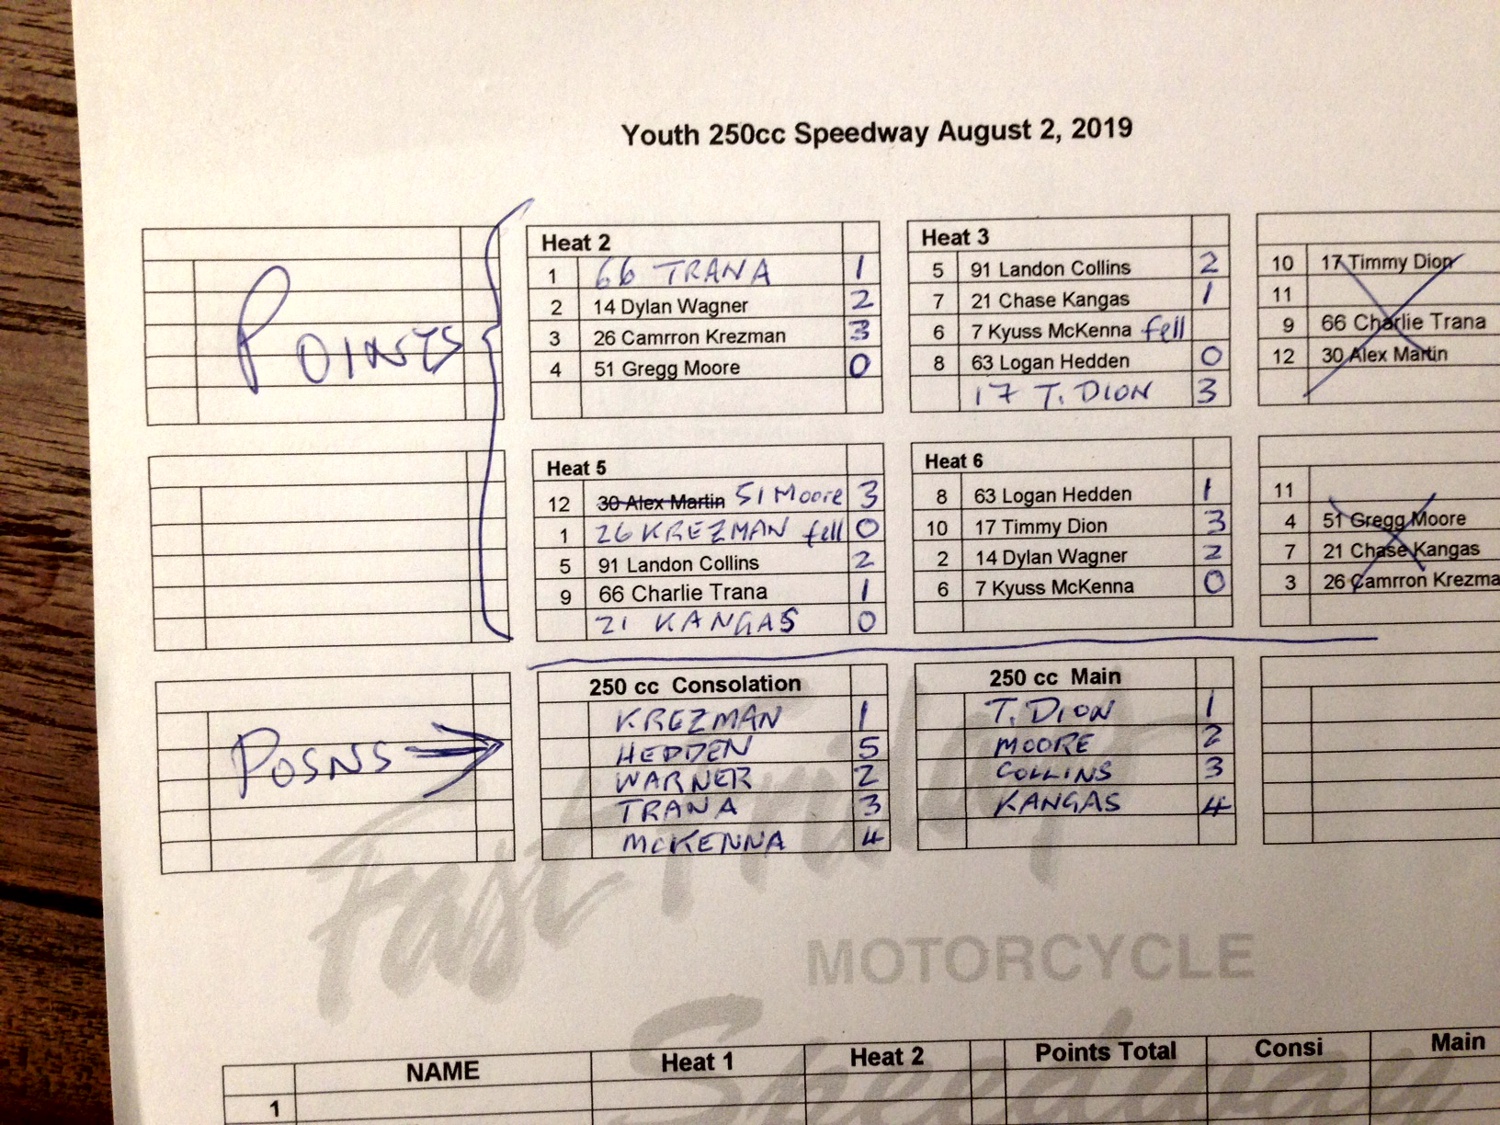 Youth 250cc Speedway August 2, 2019
POINTS
Heat 2
1 66 TRANA 1
2 14 Dylan Wagner 2
3 26 Camrron Krezman 3
4 51 Gregg Moore 0
Heat 3
5 91 Landon Collins 2
7 21 Chase Kangas 1
6 7 Kyuss McKenna fell
8 63 Logan Hedden 0
17 T. DION 3
10 17 Timmy Dion
11
9 66 Charlie Trana
12 30 Alex Martin
Heat 5
12 30 Alex Martin 51 Moore 3
1 26 KREZMAN fell 0
5 91 Landon Collins 2
9 66 Charlie Trana 1
21 KANGAS 0
Heat 6
8 63 Logan Hedden 1
10 17 Timmy Dion 3
2 14 Dylan Wagner 2
6 7 Kyuss McKenna 0
11
4 51 Gregg Moore
7 21 Chase Kangas
3 26 Camrron Krezma
POSNS
250 cc Consolation
KREZMAN 1
HEDDEN 5
WARNER 2
TRANA 3
McKENNA 4
250 cc Main
T. DION 1
MOORE 2
COLLINS 3
KANGAS 4
Fast Friday
MOTORCYCLE
Speedway
NAME Heat 1 Heat 2 Points Total Consi Main
1